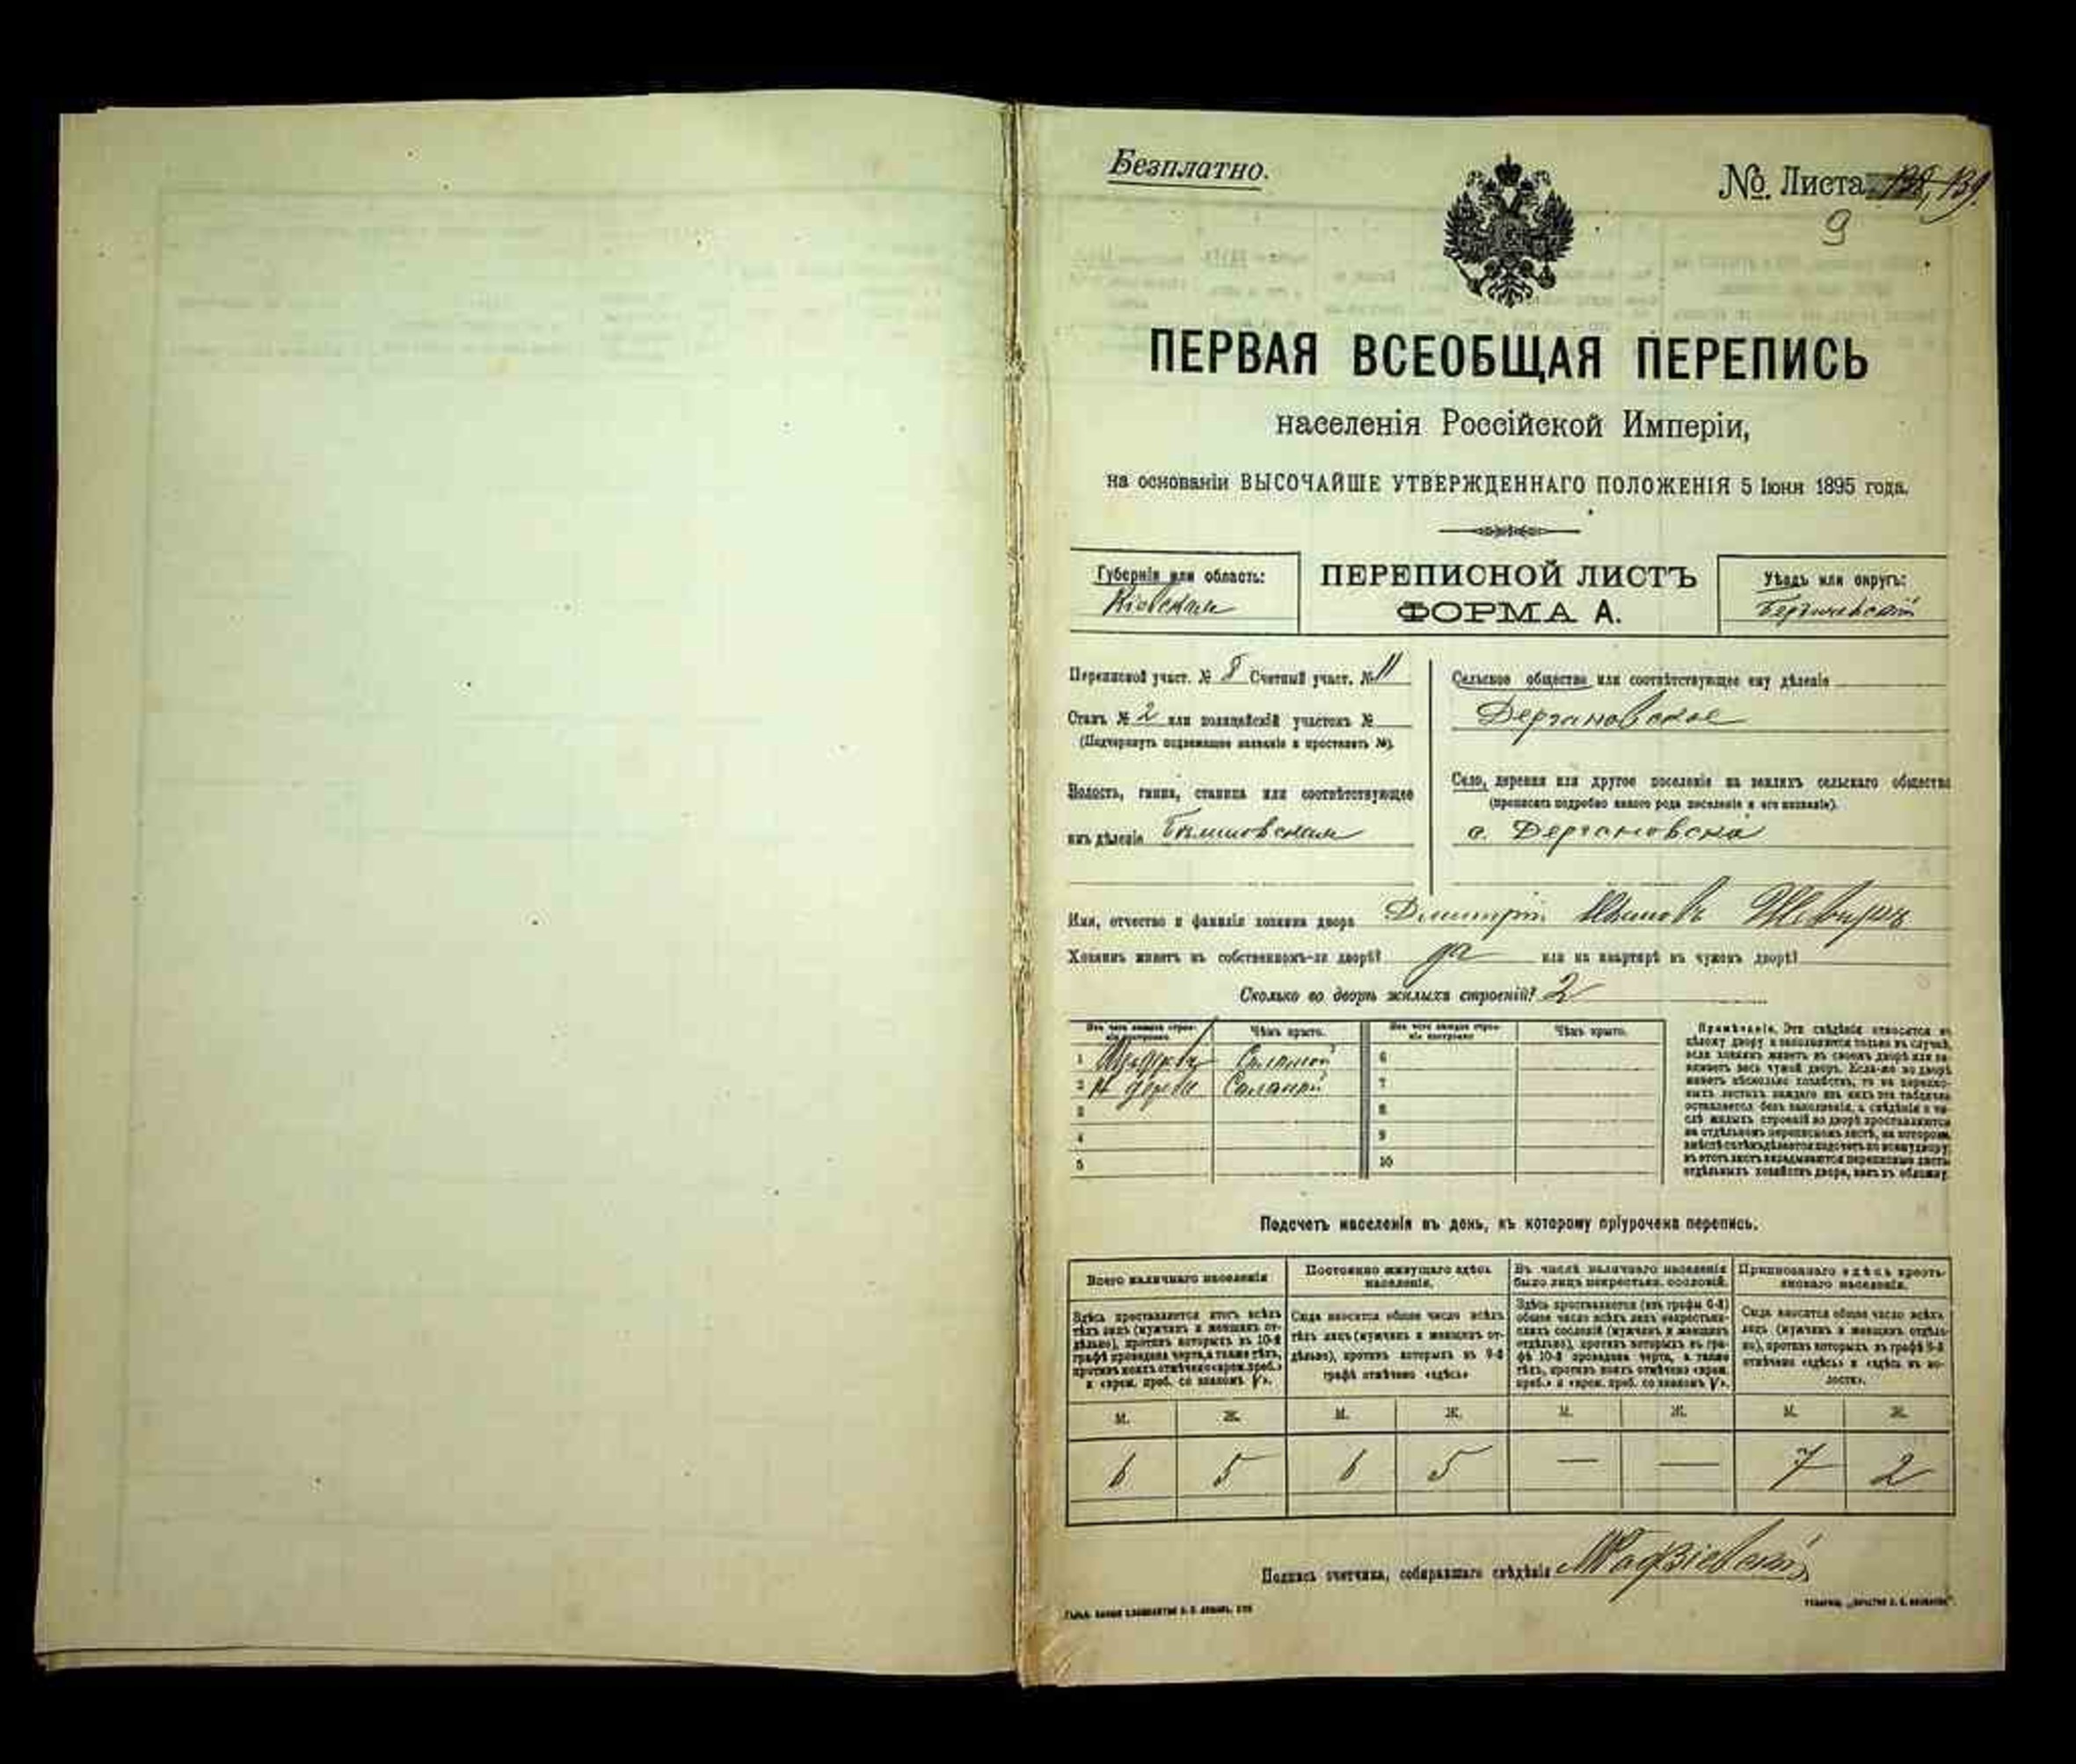 Безплатно.
№. Листа 139.
9
ПЕРВАЯ ВСЕОБЩАЯ ПЕРЕПИСЬ
населенія Россійской Имперіи,
на основаніи ВЫСОЧАЙШЕ УТВЕРЖДЕННАГО ПОЛОЖЕНІЯ 5 Іюня 1895 года.
Губернія или область:
Кіевская
ПЕРЕПИСНОЙ ЛИСТЪ
ФОРМА А.
Уѣздъ или округъ:
Бердичевскій
Переписной участ. № 8 Счетный участ. № 11
Станъ № 2 или полицейскій участокъ №
(Подчеркнуть подлежащее названіе и проставить №).
Волость, гмина, станица или соотвѣтствующее
имъ дѣленіе
Сельское общество или соотвѣтствующее ему дѣленіе
Дергановское
Село, деревня или другое поселеніе на земляхъ сельскаго общества
(прописать подробно какого рода поселеніе и его названіе).
Имя, отчество и фамилія хозяина двора Дмитрій
Хозяинъ живетъ въ собственномъ-ли дворѣ? да или на квартирѣ въ чужомъ дворѣ?
Сколько во дворѣ жилыхъ строеній? 2
Изъ чего каждое строеніе построено. Чѣмъ крыто. Изъ чего каждое строеніе построено. Чѣмъ крыто.
1 Соломой 6
2 Соломой 7
3 8
4 9
5 10
Примѣчаніе. Эти свѣдѣнія относятся къ
цѣлому двору и заполняются только въ случаѣ,
если хозяинъ живетъ въ своемъ дворѣ или за-
нимаетъ весь чужой дворъ. Если-же во дворѣ
живетъ нѣсколько хозяйствъ, то на перепис-
ныхъ листахъ каждаго изъ нихъ эта табличка
оставляется безъ заполненія, а свѣдѣнія о чи-
слѣ жилыхъ строеній во дворѣ проставляются
на отдѣльномъ переписномъ листѣ, на которомъ
вмѣстѣ съ тѣмъ дѣлается подсчетъ по всему двору;
въ этотъ листъ вкладываются переписные листы
отдѣльныхъ хозяйствъ двора, какъ въ обложку.
Подсчетъ населенія въ день, къ которому пріурочена перепись.
Всего наличнаго населенія
Здѣсь проставляется итогъ всѣхъ
тѣхъ лицъ (мужчинъ и женщинъ от-
дѣльно), противъ которыхъ въ 10-й
графѣ проведена черта, а также тѣхъ,
противъ коихъ отмѣчено «врем. преб.»
и «врем. преб. со знакомъ V».
Постоянно живущаго здѣсь
населенія.
Сюда вносится общее число всѣхъ
тѣхъ лицъ (мужчинъ и женщинъ от-
дѣльно), противъ которыхъ въ 9-й
графѣ отмѣчено «здѣсь»
Въ числѣ наличнаго населенія
было лицъ некрестьян. сословій.
Здѣсь проставляется (изъ графы 6-й)
общее число всѣхъ лицъ некрестьян-
скихъ сословій (мужчинъ и женщинъ
отдѣльно), противъ которыхъ въ гра-
фѣ 10-й проведена черта, а также
тѣхъ, противъ коихъ отмѣчено «врем.
преб.» и «врем. преб. со знакомъ V».
Приписаннаго здѣсь кресть-
янскаго населенія.
Сюда вносится общее число всѣхъ
лицъ (мужчинъ и женщинъ отдѣль-
но), противъ которыхъ въ графѣ 8-й
отмѣчено «здѣсь» и «здѣсь въ во-
лости».
М. Ж. М. Ж. М. Ж. М. Ж.
6 5 6 5 — — 7 2
Подпись счетчика, собиравшаго свѣдѣнія